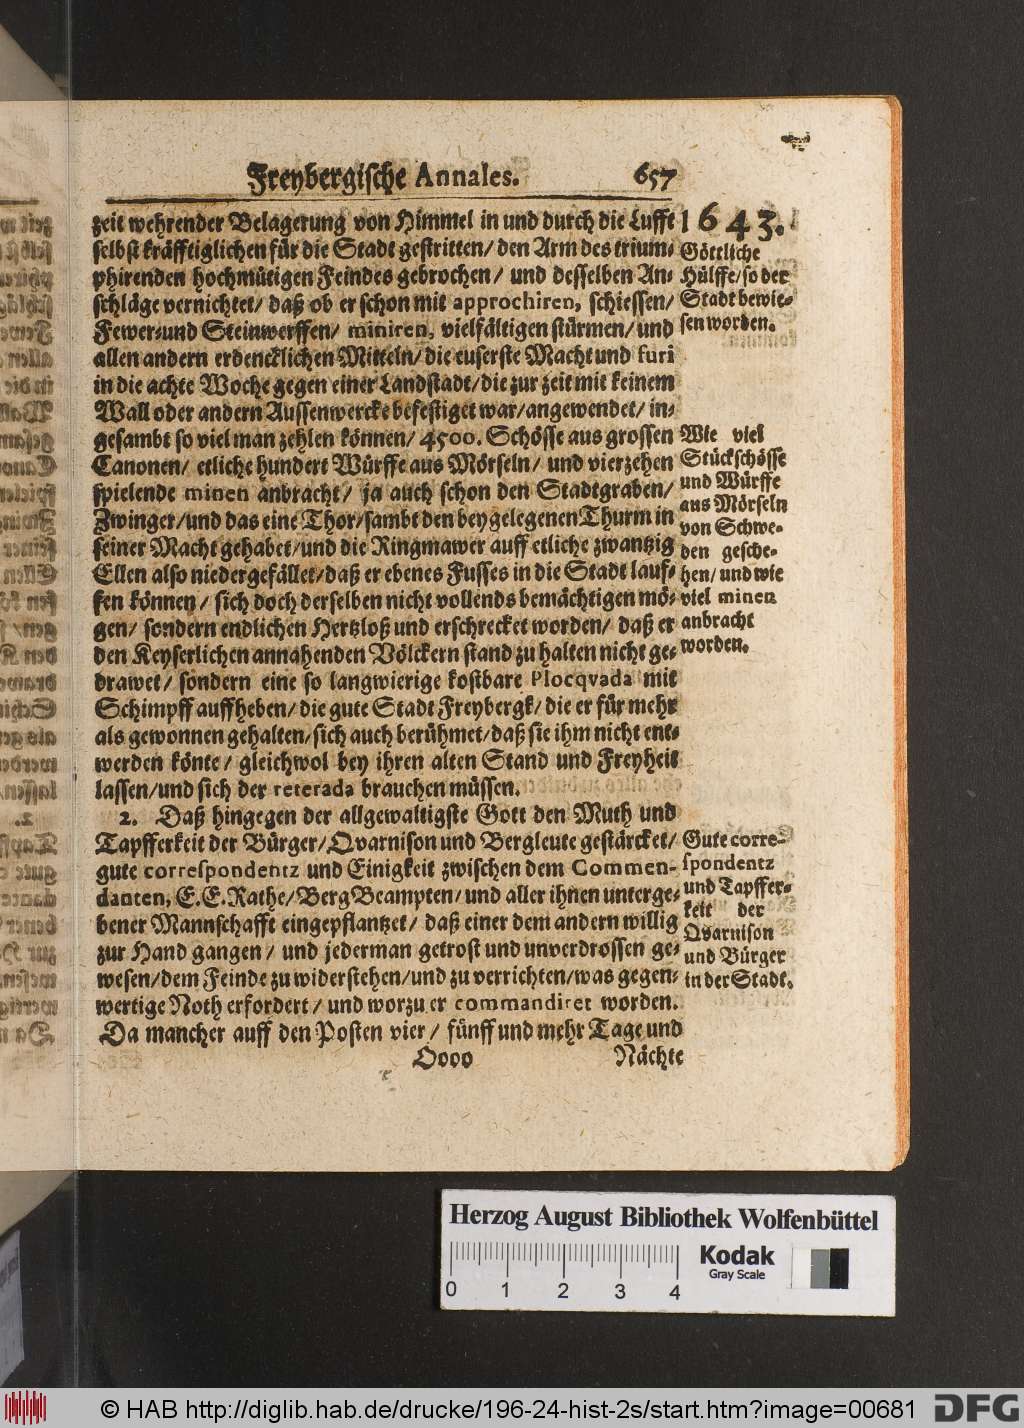 Freybergische Annales. 657
zeit wehrender Belagerung von Himmel in und durch die Lufft
selbst kräfftiglichen für die Stadt gestritten/ den Arm des trium-
phirenden hochmütigen Feindes gebrochen/ und desselben An-
schläge vernichtet/ daß ob er schon mit approchiren, schiessen/
Fewer- und Steinwerffen/ miniren, vielfältigen stürmen/ und
allen andern erdencklichen Mitteln/ die euserste Macht und furi
in die achte Woche gegen einer Landstadt/ die zur zeit mit keinem
Wall oder andern Aussenwercke befestiget war/ angewendet/ in-
gesambt so viel man zehlen können/ 4500. Schösse aus grossen
Canonen/ etliche hundert Würffe aus Mörseln/ und vierzehen
spielende minen anbracht/ ja auch schon den Stadtgraben/
Zwinger/ und das eine Thor/ sambt den beygelegenen Thurm in
seiner Macht gehabet/ und die Ringmawer auff etliche zwantzig
Ellen also niedergefället/ daß er ebenes Fusses in die Stadt lauf-
fen können/ sich doch derselben nicht vollends bemächtigen mö-
gen/ sondern endlichen Hertzloß und erschrecket worden/ daß er
den Keyserlichen annahenden Völckern stand zu halten nicht ge-
drawet/ sondern eine so langwierige kostbare Plocqvada mit
Schimpff auffheben/ die gute Stadt Freybergk/ die er für mehr
als gewonnen gehalten/ sich auch berühmet/ daß sie ihm nicht ent-
werden könte/ gleichwol bey ihren alten Stand und Freyheit
lassen/ und sich der reterada brauchen müssen.
2. Daß hingegen der allgewaltigste Gott den Muth und
Tapfferkeit der Bürger/ Qvarnison und Bergleute gestärcket/
gute correspondentz und Einigkeit zwischen dem Commen-
danten, E. E. Rathe/ Berg Beampten/ und aller ihnen unterge-
bener Mannschafft eingepflantzet/ daß einer dem andern willig
zur Hand gangen/ und jederman getrost und unverdrossen ge-
wesen/ dem Feinde zu widerstehen/ und zu verrichten/ was gegen-
wertige Noth erfordert/ und worzu er commandiret worden.
Da mancher auff den Posten vier/ fünff und mehr Tage und
Oooo Nächte
1643.
Göttliche
Hülffe/ so der
Stadt bewie-
sen worden.
Wie viel
Stückschösse
und Würffe
aus Mörseln
von Schwe-
den gesche-
hen/ und wie
viel minen
anbracht
worden.
Gute corre-
spondentz
und Tapffer-
keit der
Qvarnison
und Bürger
in der Stadt.
Herzog August Bibliothek Wolfenbüttel
Kodak
Gray Scale
0 1 2 3 4
© HAB http://diglib.hab.de/drucke/196-24-hist-2s/start.htm?image=00681
DFG